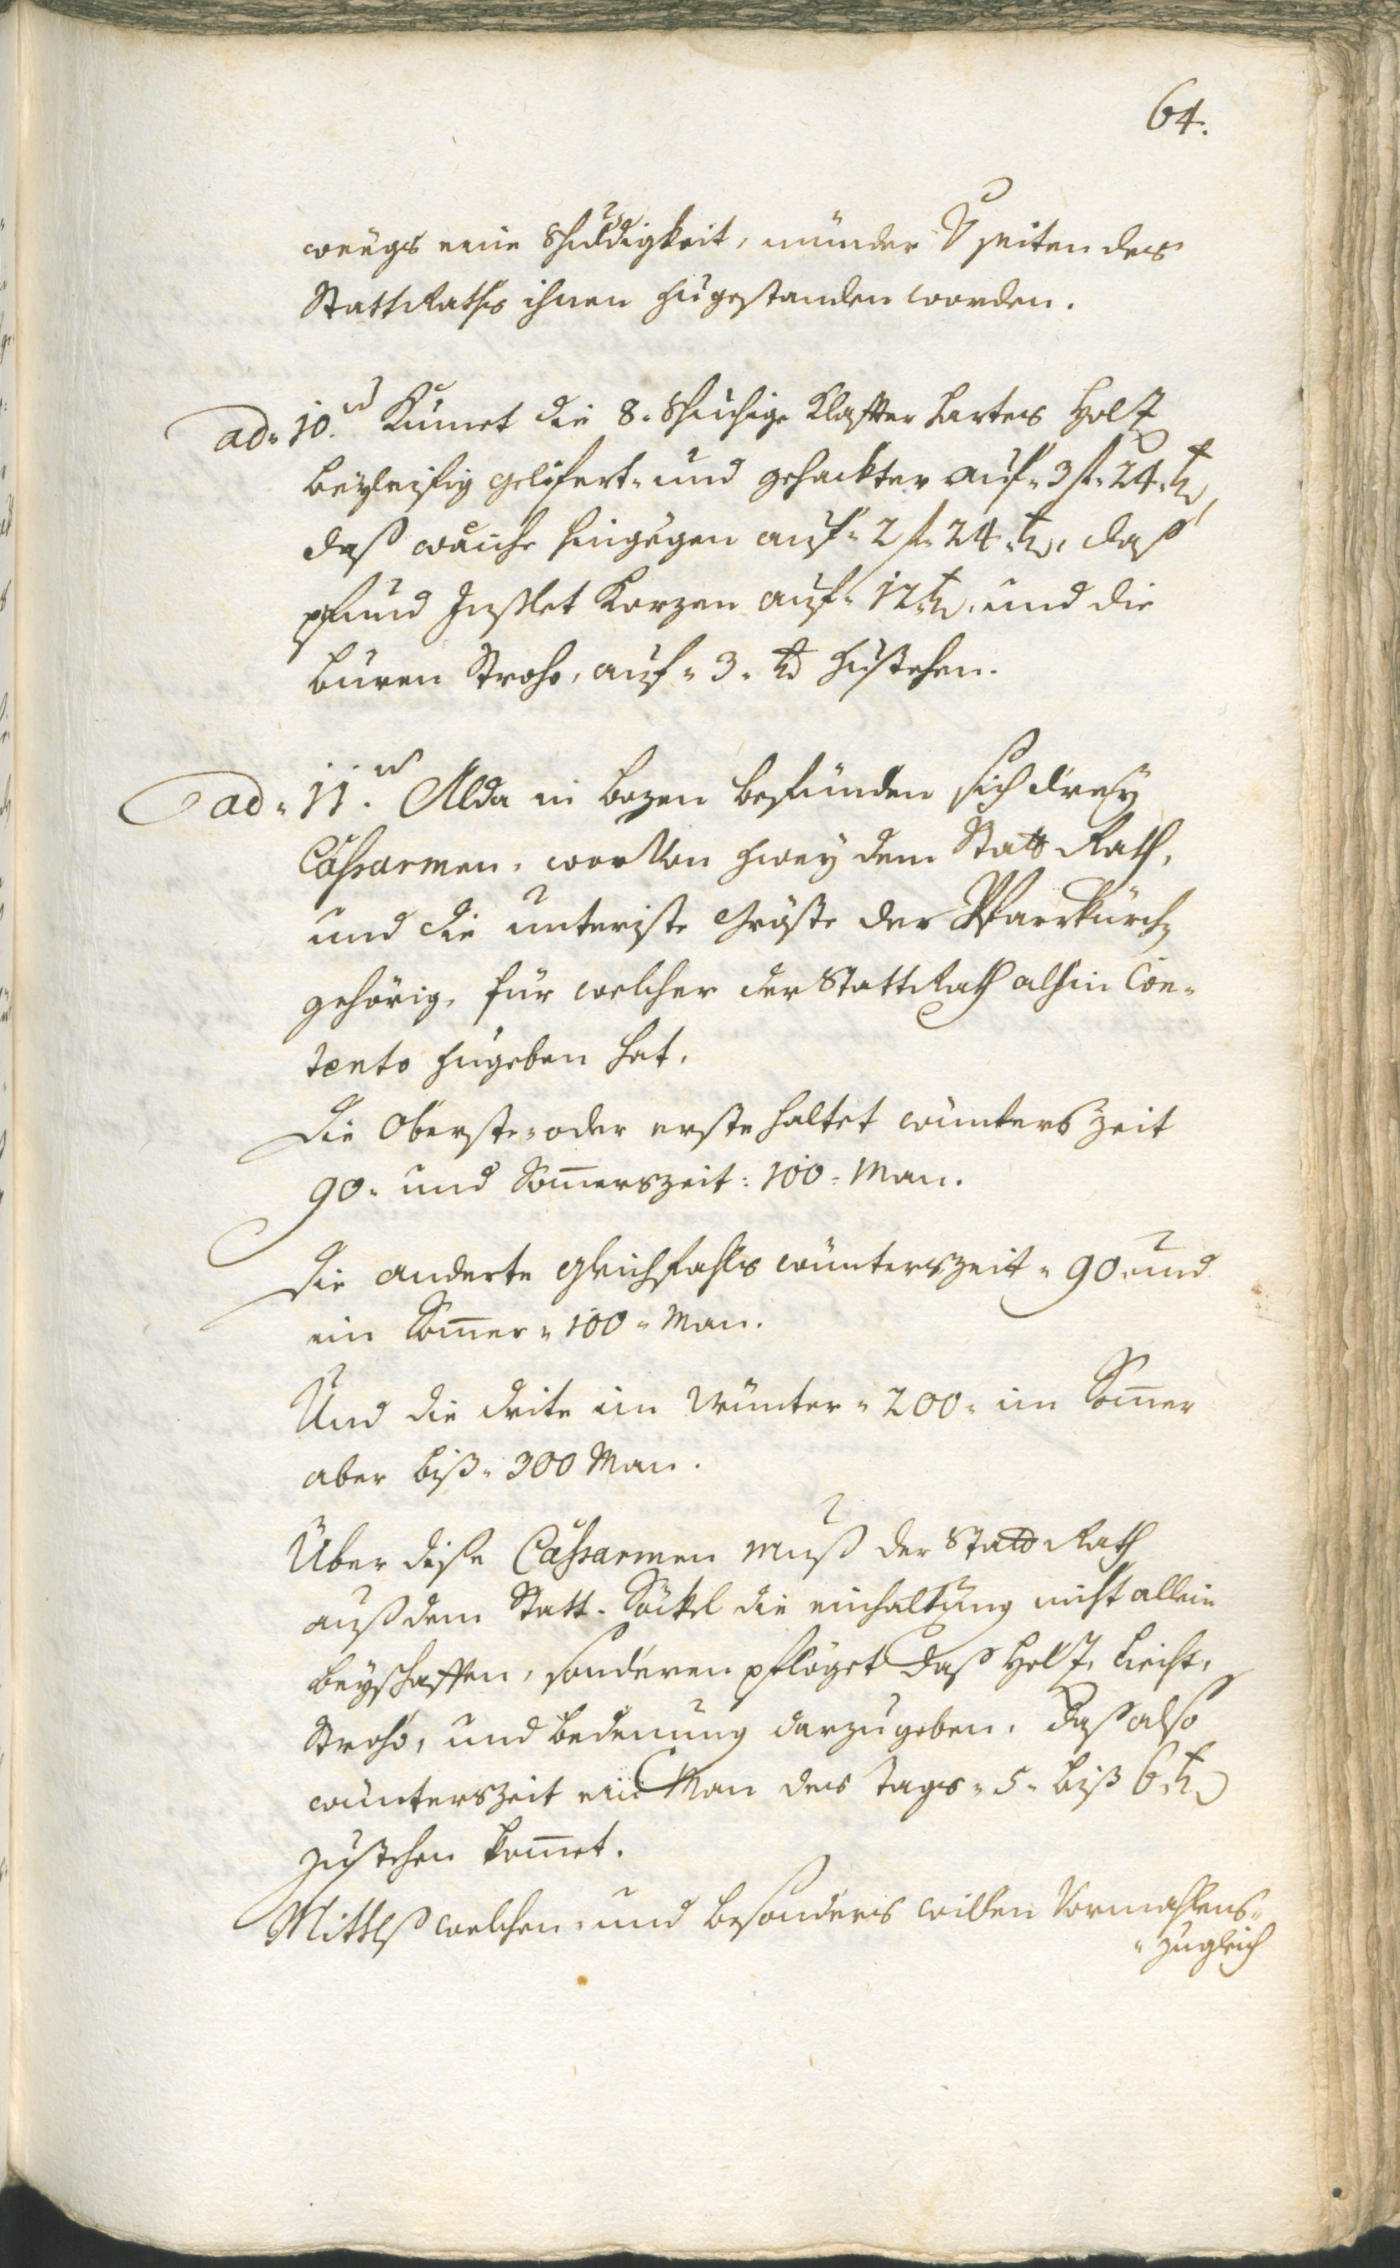 64.
weegs eine Schuldigkeit, münder Seiten des
StattRaths ihnen zugestanden worden.
ad 10.m Kumet die 8. Schuchige Klaffter hartes Holz
beyleifig gelifert- und gehackter auf 3 f 24 kr,
daß waiche hingegen auf 2 f 24 kr, daß
pfund Inslet Kerzen auf 12 kr, und die
buren Stroho, auf 3 kr zustehen.
ad 11.m Alda in bozen befünden sich drey
Cassarmen, worvon zwey dem Statt Rath,
und die unteriste Gröste der Pfarrkürch
gehörig, für welcher der StattRath alhin Con-
tento zugeben hat.
Die Oberste- oder erste haltet wünters Zeit
90. und Somerszeit 100 Man.
Die anderte gleichfahls wünterszeit 90 und
im Sommer 100 Man.
Und die drite im Wünter 200 im Sommer
aber biß 300 Man.
Über dise Cassarmen muß der Statt Rath
auß dem Statt Söckel die einhaltung nicht allein
beyschaffen, sonderen pfleget daß Holz, Liecht,
Stroho, und bedenung darzugeben, daß also
wünterszeit ein Man des Tags 5 biß 6 kr
zustehen komet.
Mittlß welchen, und besonders willen Vormahlens
zugleich